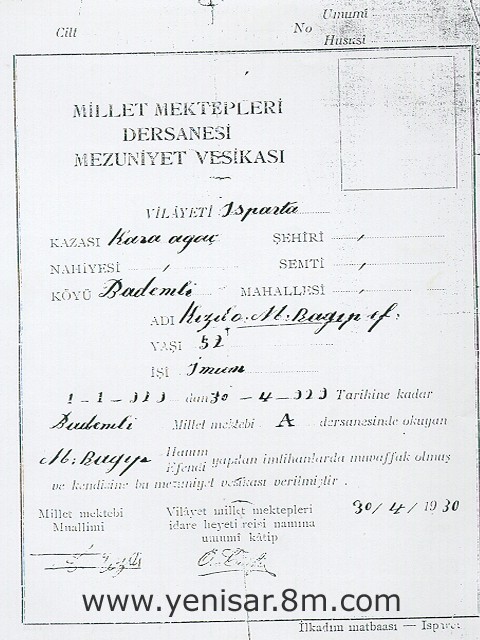 Umumî
Cilt No
Hususi
MİLLET MEKTEPLERİ
DERSANESİ
MEZUNİYET VESİKASI
VİLÂYETİ Isparta
KAZASI Kara agaç ŞEHİRİ
NAHİYESİ SEMTİ
KÖYÜ Bademli MAHALLESİ
ADI M: Ragıp ef:
YAŞI 52
İŞİ İmam
1-1- dan 30-4- Tarihine kadar
Bademli Millet mektebi A dersanesinde okuyan
M: Ragıp Hanım
Efendi yapılan imtihanlarda muvaffak olmuş
ve kendisine bu mezuniyet vesikası verilmiştir .
Millet mektebi Muallimi
Vilâyet millet mektepleri idare heyeti reisi namına umumî kâtip
30/4/1930
www.yenisar.8m.com
İlkadım matbaası — Isparta